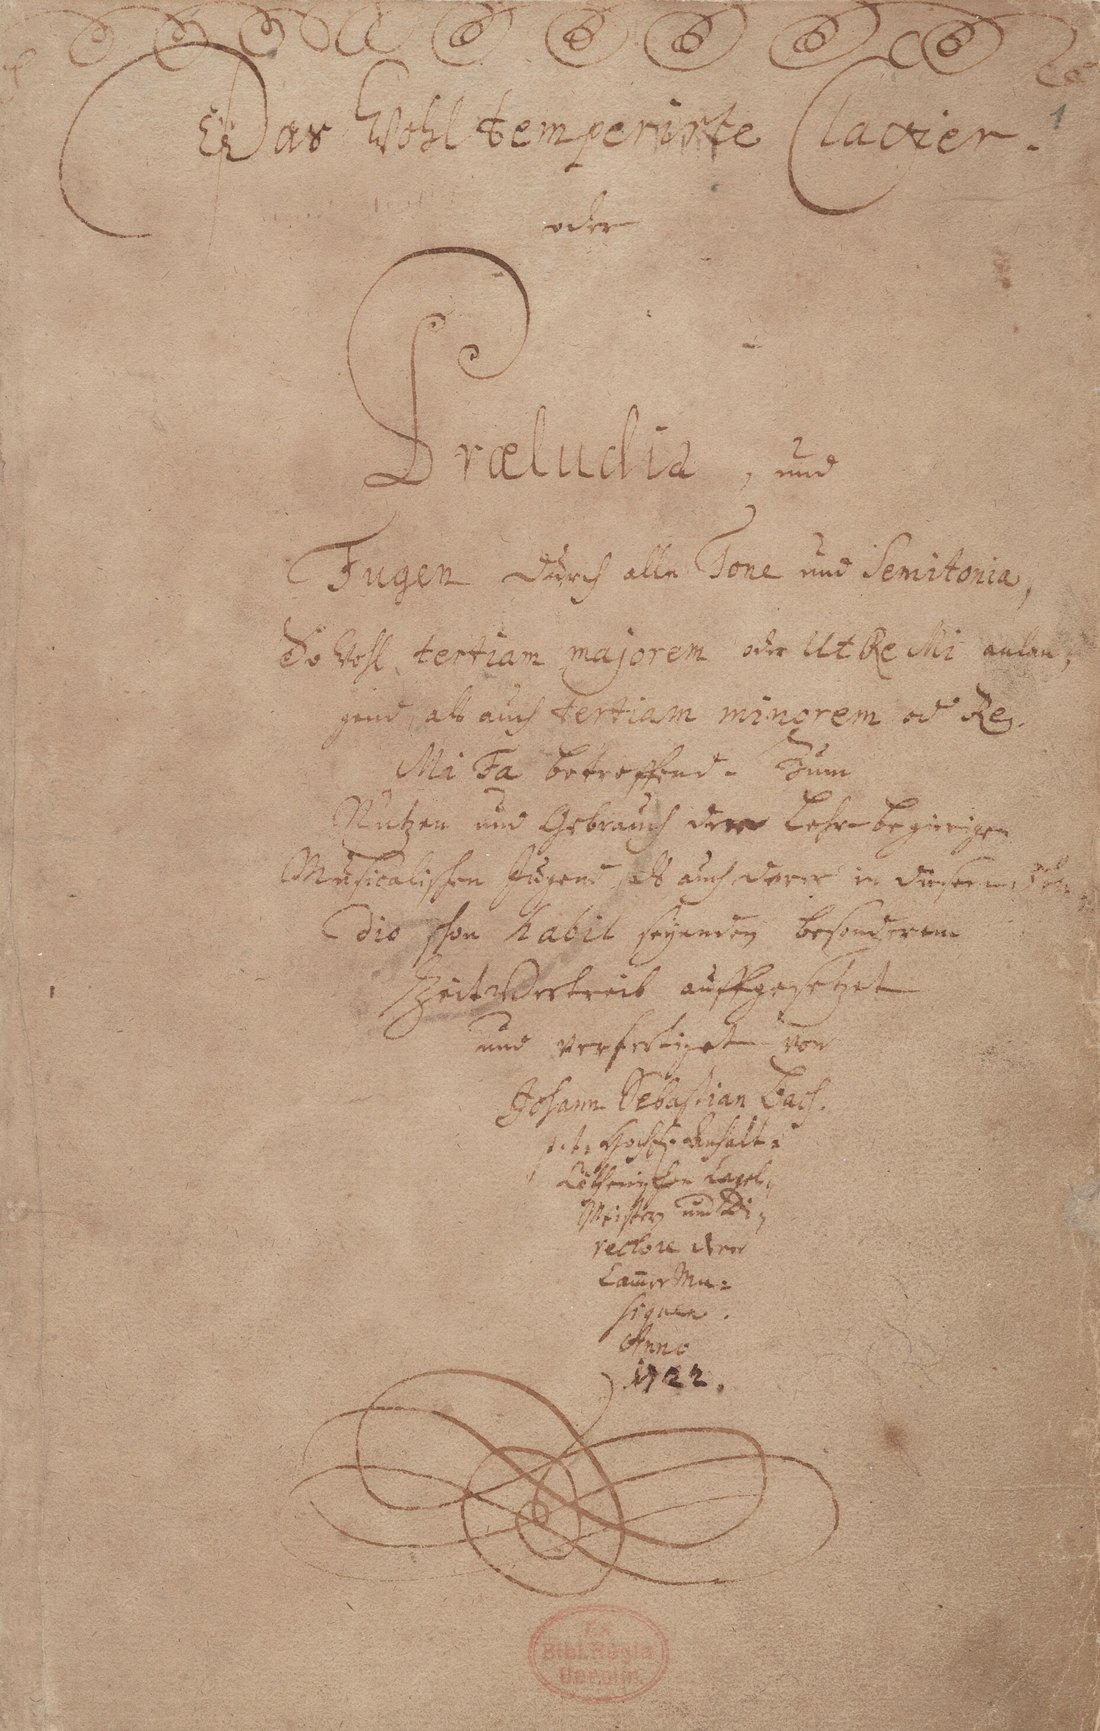 1
Das Wohltemperirte Clavier.
oder
Præludia, und
Fugen durch alle Tone und Semitonia,
So wohl tertiam majorem oder Ut Re Mi anlan-
gend, als auch tertiam minorem od Re
Mi Fa betreffend. Zum
Nutzen und Gebrauch der Lehr-begierigen
Musicalischen Jugend, als auch derer in diesem stu-
dio schon habil seyenden besonderem
ZeitVertreib auffgesetzet
und verfertiget von
Johann Sebastian Bach.
p. t. HochF. Anhalt-
Cöthenischen Capel-
Meistern und Di-
rectore derer
Cam̅er Mu-
siquen.
Anno
1722.
Ex
Bibl. Regia
Berolin.